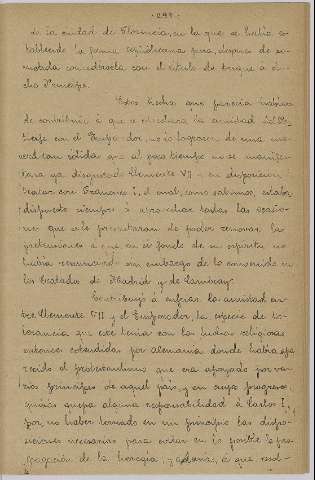 de la ciudad de Florencia, en la que se había es-
tablecido la forma republicana para, después de so-
metida concedérsela con el título de Duque a di-
cho Príncipe.
Estos hechos que parecía habían
de contribuir á que se estrechara la amistad del Pon-
tífice con el Emperador, no lo lograron de una ma-
nera tan sólida que al poco tiempo no se manifes-
tara ya disgustado Clemente VII y en disposición de
tratar con Francisco I, el cual, como sabemos, estaba
dispuesto siempre á aprovechar todas las ocasio-
nes que se le presentaran de poder renovar las
pretensiones á que en el fondo de su espíritu no
había renunciado sin embargo de lo convenido en
los tratados de Madrid y de Cambray.
Contribuyó á enfriar la amistad en-
tre Clemente VII y el Emperador, la especie de to-
lerancia que éste tenía con las luchas religiosas
entonces extendidas por Alemania donde había apa-
recido el protestantismo que era apoyado por va-
rios príncipes de aquel país y en cuyo progreso
quizás quepa alguna responsabilidad á Carlos I,
por no haber tomado en un principio las dispo-
siciones necesarias para evitar en lo posible la pro-
pagación de la heregía, y además, á que resol-